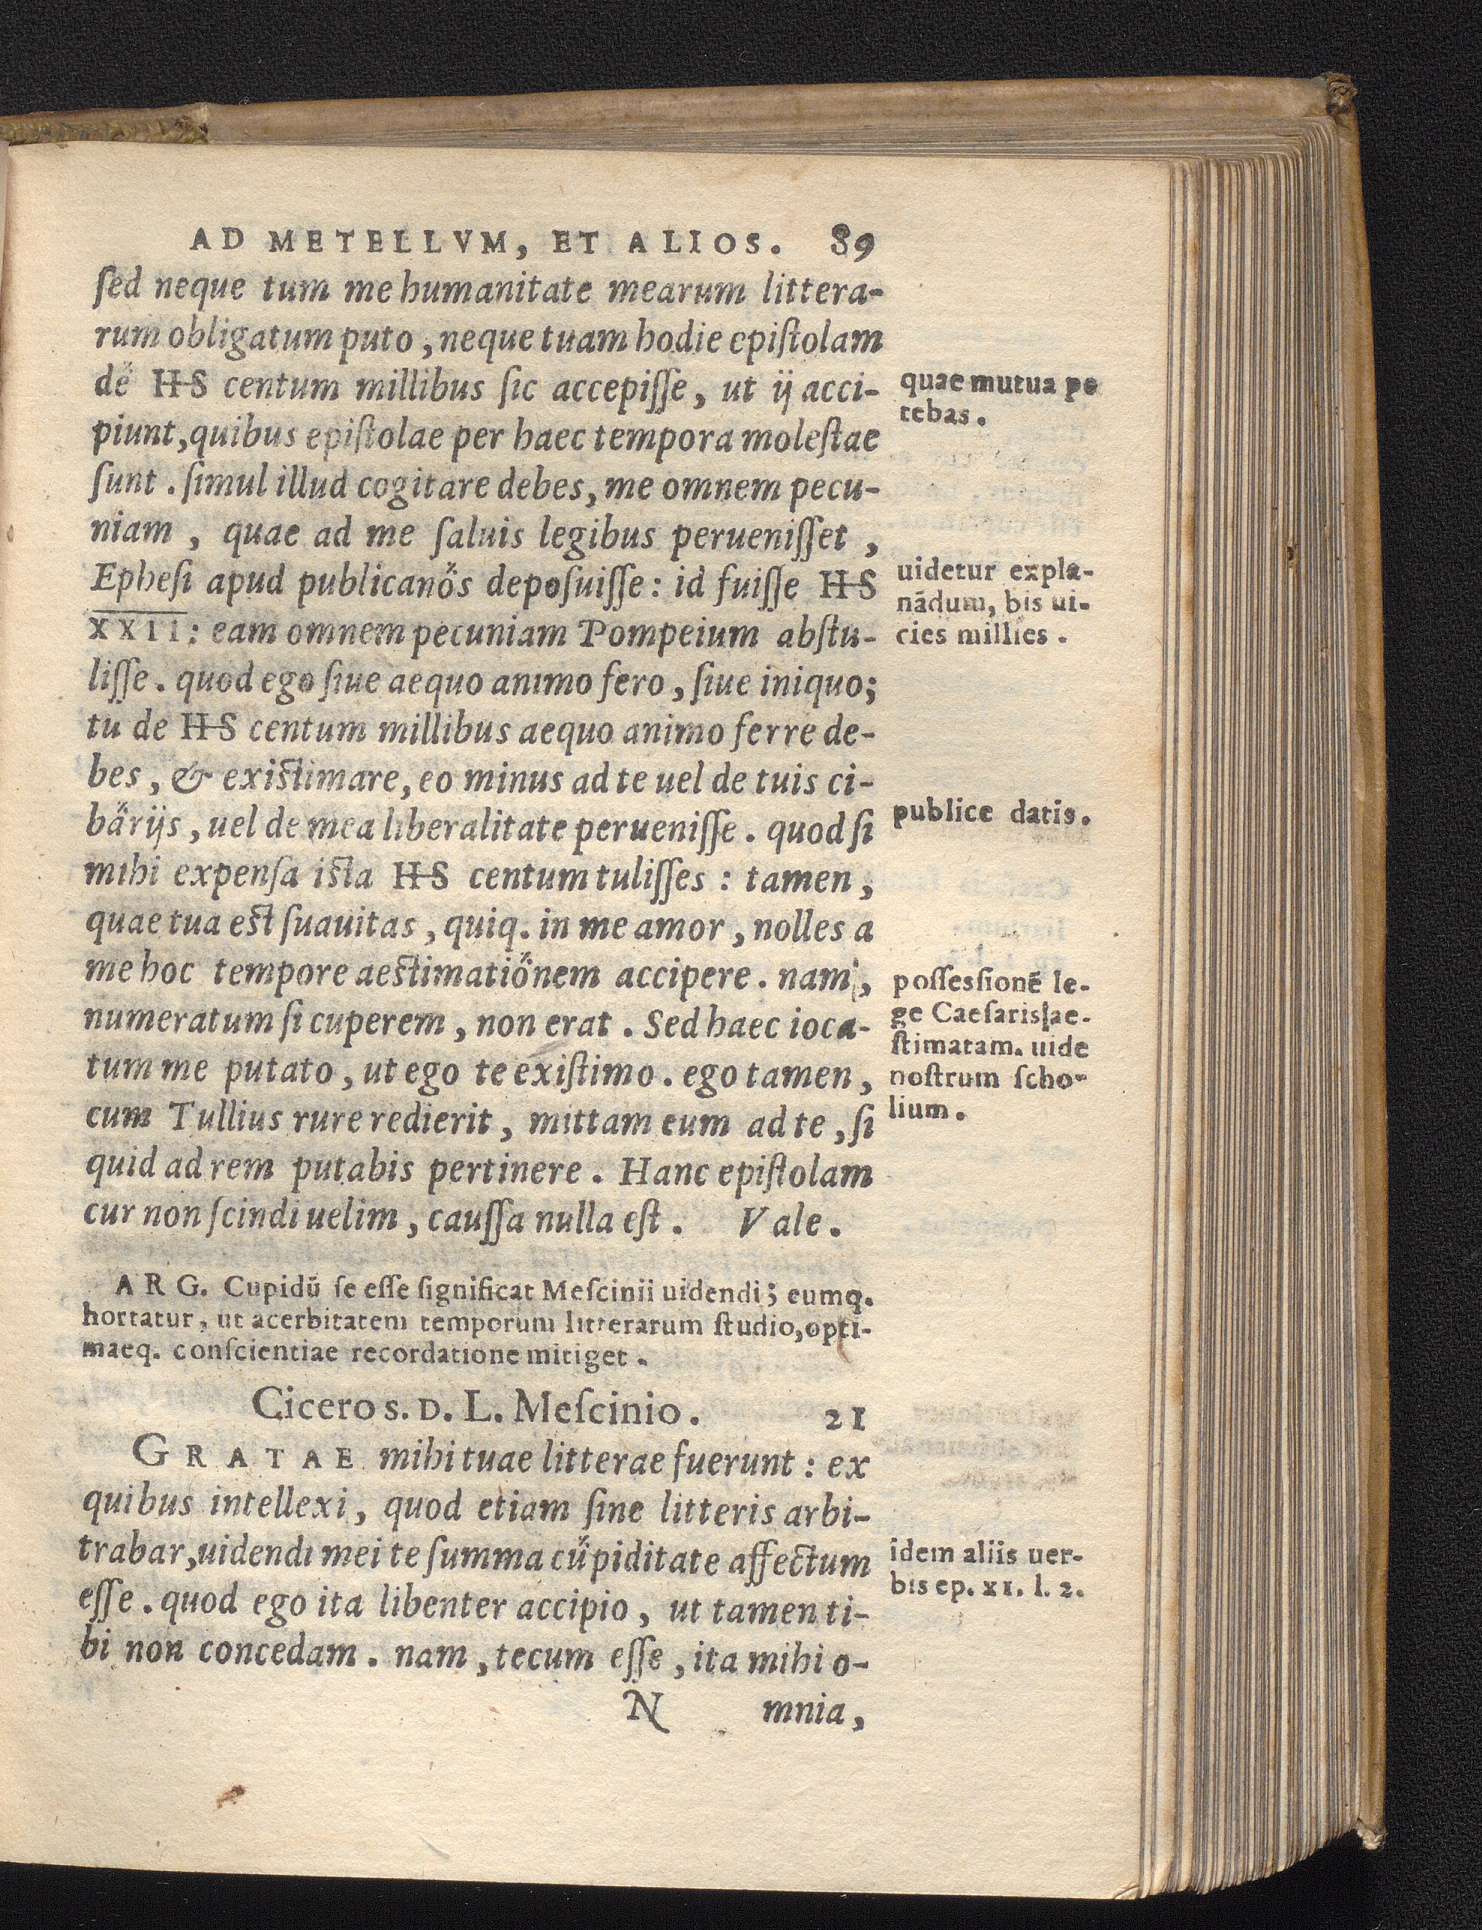 AD METELLVM, ET ALIOS. 89
ſed neque tum me humanitate mearum littera-
rum obligatum puto, neque tuam hodie epiſtolam
de HS centum millibus ſic accepiſſe, ut ij acci-
piunt, quibus epiſtolae per haec tempora moleſtae
ſunt. ſimul illud cogitare debes, me omnem pecu-
niam, quae ad me ſaluis legibus perueniſſet,
Epheſi apud publicanos depoſuiſſe: id fuiſſe HS
XXII: eam omnem pecuniam Pompeium abſtu-
liſſe. quod ego ſiue aequo animo fero, ſiue iniquo;
tu de HS centum millibus aequo animo ferre de-
bes, & existimare, eo minus ad te uel de tuis ci-
barijs, uel de mea liberalitate perueniſſe. quod ſi
mihi expenſa ista HS centum tuliſſes: tamen,
quae tua est ſuauitas, quiq. in me amor, nolles a
me hoc tempore aestimationem accipere. nam,
numeratum ſi cuperem, non erat. Sed haec ioca-
tum me putato, ut ego te exiſtimo. ego tamen,
cum Tullius rure redierit, mittam eum ad te, ſi
quid ad rem putabis pertinere. Hanc epiſtolam
cur non ſcindi uelim, cauſſa nulla eſt. Vale.
quae mutua pe
tebas.
uidetur expla-
nãdum, bis ui-
cies millies.
publice datis.
poſſeſſionẽ le-
ge Caeſaris ae-
ſtimatam. uide
noſtrum ſcho-
lium.
ARG. Cupidũ ſe eſſe ſignificat Meſcinii uidendi; eumq.
hortatur, ut acerbitatem temporum litterarum ſtudio, opti-
maeq. conſcientiae recordatione mitiget.
Cicero s. D. L. Meſcinio. 21
GRATAE mihi tuae litterae fuerunt: ex
quibus intellexi, quod etiam ſine litteris arbi-
trabar, uidendi mei te ſumma cupiditate affectum
eſſe. quod ego ita libenter accipio, ut tamen ti-
bi non concedam. nam, tecum eſſe, ita mihi o-
idem aliis uer-
bis ep. XI. l. 2.
N mnia,